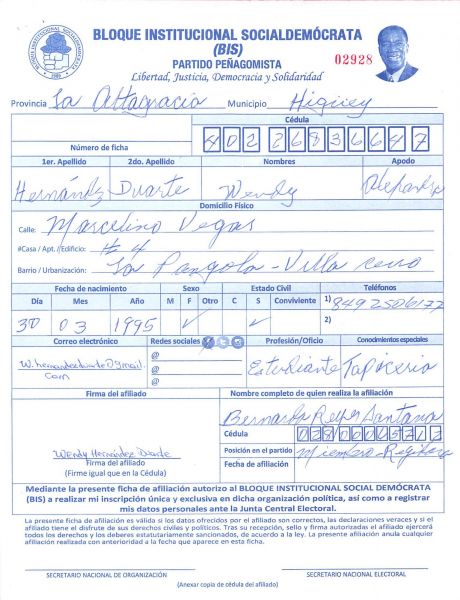 BLOQUE INSTITUCIONAL SOCIALDEMÓCRATA
(BIS)
PARTIDO PEÑAGOMISTA
02928
Libertad, Justicia, Democracia y Solidaridad
Provincia La Altagracia Municipio Higüey
Cédula
Número de ficha 402 2683664 7
1er. Apellido 2do. Apellido Nombres Apodo
Hernández Duarte Wendy
Domicilio Físico
Calle: Marcelino Vegas
#Casa / Apt. /Edificio: # 4
Barrio / Urbanización: La Pangola - Villa cerro
Fecha de nacimiento Sexo Estado Civil Teléfonos
Día Mes Año M F Otro C S Conviviente 1) 8492506177
30 03 1995 ✓ ✓ 2)
Correo electrónico Redes sociales Profesión/Oficio Conocimientos especiales
W.hernandezduarte@gmail.com
@
@
@
Estudiante Tapiceria
Firma del afiliado Nombre completo de quien realiza la afiliación
Bernarda Reyes Santana
Cédula
Wendy Hernández Duarte
Posición en el partido Miembro-
Firma del afiliado
(Firme igual que en la Cédula)
Fecha de afiliación
Mediante la presente ficha de afiliación autorizo al BLOQUE INSTITUCIONAL SOCIAL DEMÓCRATA
(BIS) a realizar mi inscripción única y exclusiva en dicha organización política, así como a registrar
mis datos personales ante la Junta Central Electoral.
La presente ficha de afiliación es válida si los datos ofrecidos por el afiliado son correctos, las declaraciones veraces y si el
afiliado tiene el disfrute de sus derechos civiles y políticos. Tras su recepción, sello y firma autorizadas el afiliado ejercerá
todos los derechos y los deberes estatutariamente sancionados, de acuerdo a la ley. La presente afiliación anula cualquier
afiliación realizada con anterioridad a la fecha que aparece en esta ficha.
SECRETARIO NACIONAL DE ORGANIZACIÓN SECRETARIO NACIONAL ELECTORAL
(Anexar copia de cédula del afiliado)